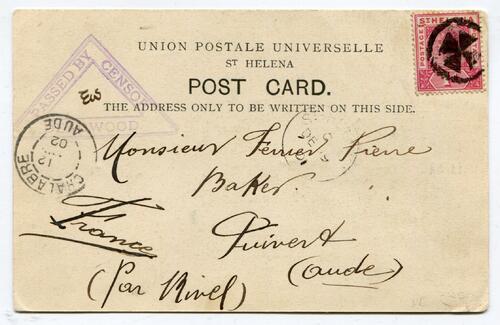 UNION POSTALE UNIVERSELLE
ST HELENA
POST CARD.
THE ADDRESS ONLY TO BE WRITTEN ON THIS SIDE.
PASSED BY CENSOR
WOOD
POSTAGE
ST HELENA
CHALABRE
12
02
AUDE
Monsieur Ferrier Pierre
Baker
Puivert
France
(Aude)
(Par Rivel)